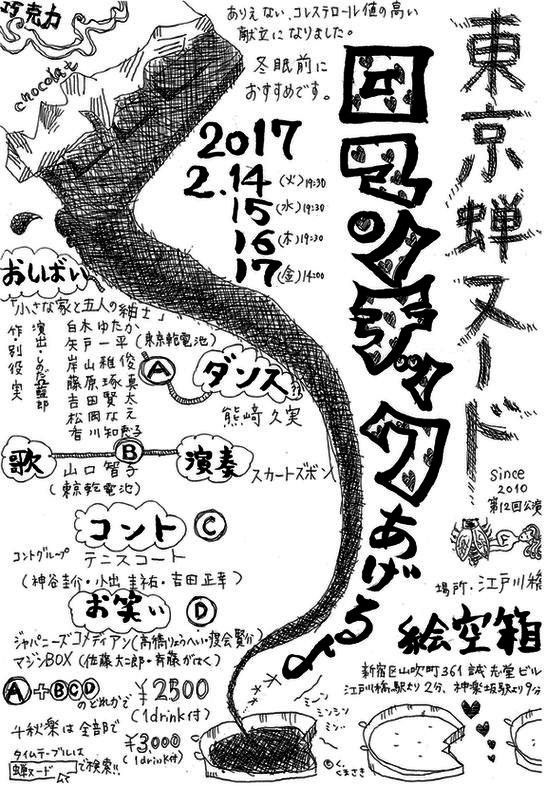 東京蝉ヌード
ロマンチックあげるよ
巧克力
chocolat
ありえない、コレステロール値の高い
献立になりました。
冬眠前に
おすすめです。
2017
2.14(火)19:30
15(水)19:30
16(木)19:30
17(金)14:00
since
2010
第12回公演
おしばい
「小さな家と五人の紳士」
作・別役実
演出・
白木ゆたか
矢戸一平(東京乾電池)
岸山雅俊
藤原琢真
吉田賢太
松岡なえ
香川知
A
ダンス
熊﨑久実
歌
B
演奏
山口智子
(東京乾電池)
スカートズボン
コント
C
コントグループ テニスコート
(神谷圭介・小出圭祐・吉田正幸)
お笑い
D
ジャパニーズコメディアン(高橋りょうへい・
マジンBOX(佐藤大二郎・斉藤がせく)
A+BCDのどれかで ¥2500
(1drink付)
千秋楽は全部で ¥3,000
(1drink付)
タイムテーブルは
蝉ヌード で検索!!
場所・江戸川橋
絵空箱
新宿区山吹町361 誠志堂ビル
江戸川橋駅より2分、神楽坂駅より9分
ミーン
ミンミン
ミン…
©く.
くまさき